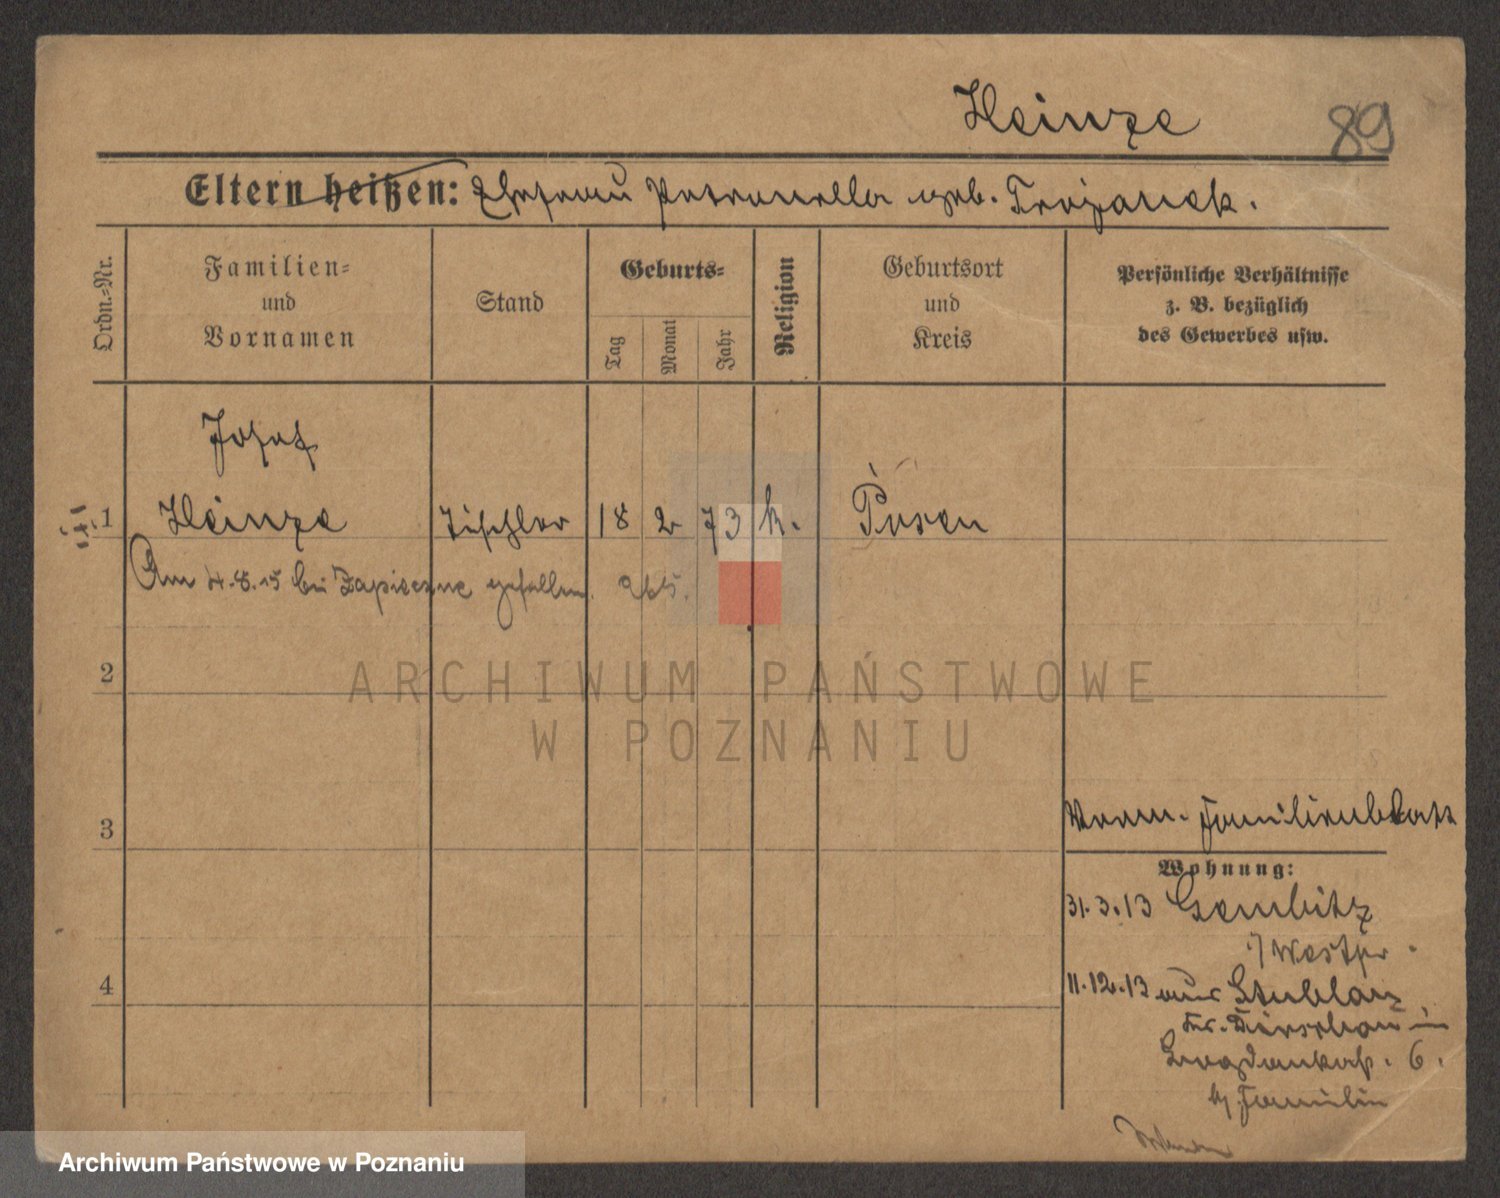 Heinze 89
Eltern heißen: Ehefrau Petronella geb. Trojanek.
Ordn.=Nr.
Familien=
und
Vornamen
Stand
Geburts=
Tag
Monat
Jahr
Religion
Geburtsort
und
Kreis
Persönliche Verhältnisse
z. B. bezüglich
des Gewerbes usw.
Josef
1 Heinze Tischler 18 2 73 k. Posen
Am 4.8.15 bei Zapieczne gefallen.
2
ARCHIWUM PAŃSTWOWE
W POZNANIU
Familienblatt
3
Wohnung:
31.3.13 Gembitz
Westpr.
4
11.12.13 aus Stublau
Kr. Dirschau in
6.
Familie
Archiwum Państwowe w Poznaniu